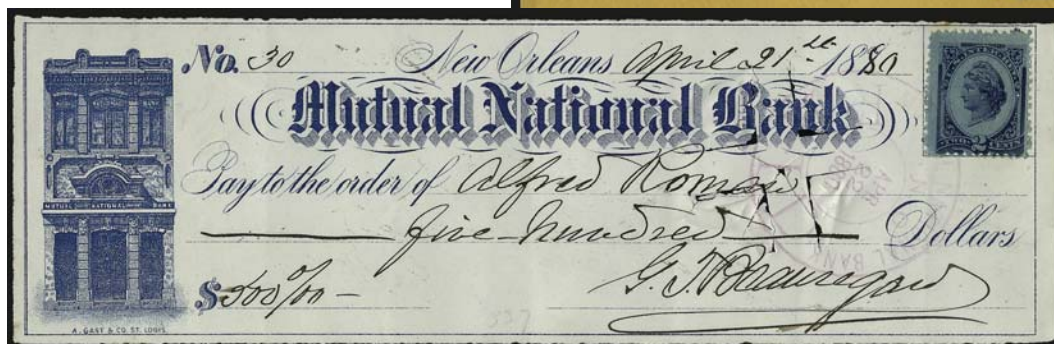 No. 30 New Orleans April 21st 1880
Mutual National Bank
Pay to the order of Alfred Roman
five hundred Dollars
$500/00 -
G. T. Beauregard
MUTUAL NATIONAL BANK
A. GAST & CO. ST. LOUIS.